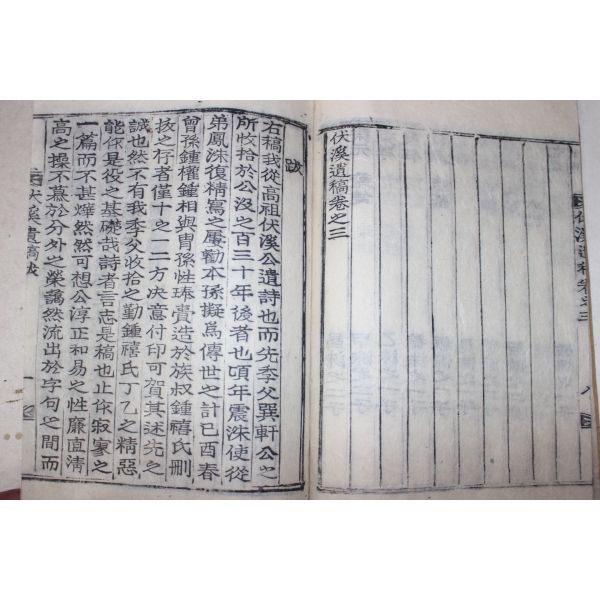 伏溪遺稿卷之三
伏溪遺稿卷之三
八
跋
右稿我從高祖伏溪公遺詩也而先季父巽軒公之
所收拾於公沒之百三十年後者也頃年震洙使從
弟鳳洙復精寫之屢勸本孫擬爲傳世之計己酉春
曾孫鍾權鍾相與冑孫性琫賫造於族叔鍾禧氏刪
拔之行者僅十之一二方决意付印可賀其述先之
誠也然不有我季父收拾之勤鍾禧氏丁乙之精惡
能你是役之基礎哉詩者言志是稿也止你寂寥之
一篇而不甚燁然然可想公淳正和易之性廉直淸
高之操不慕於分外之榮藹然流出於字句之間而
伏溪遺稿跋
一